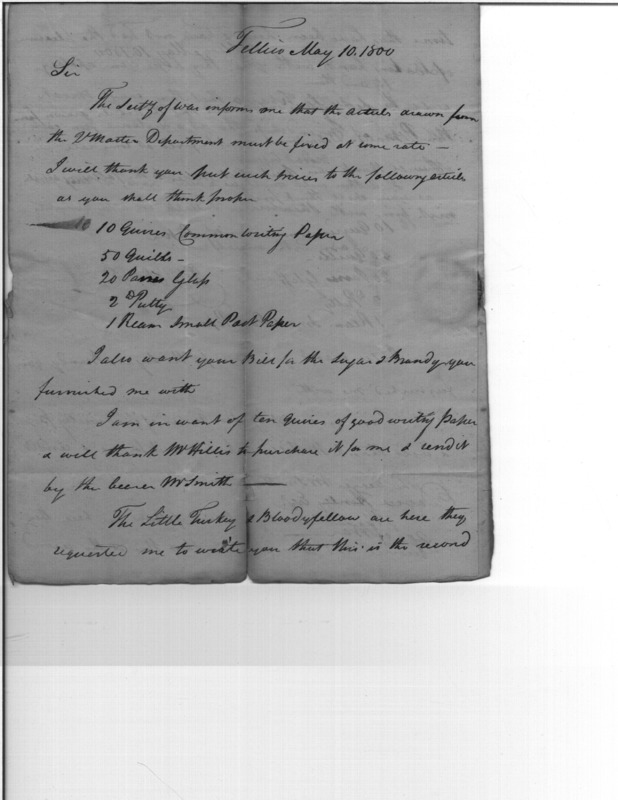 Tellico May 10. 1800
Sir
The Secty of War informs me that the articles drawn from
the Qr Master Department must be fixed at some rate —
I will thank you put such prices to the following articles
as you shall think proper
10 Quires Common Writing Paper
50 Quills —
20 Panes Glass
2 lb Putty
1 Ream Small Post Paper
I also want your Bill for the Sugar & Brandy you
furnished me with
I am in want of ten Quires of good writing paper
& will thank Mr Hillis to purchase it for me & send it
by the bearer Mr Smith —
The Little Turkey & Bloodyfellow are here they
requested me to write you that this is the second